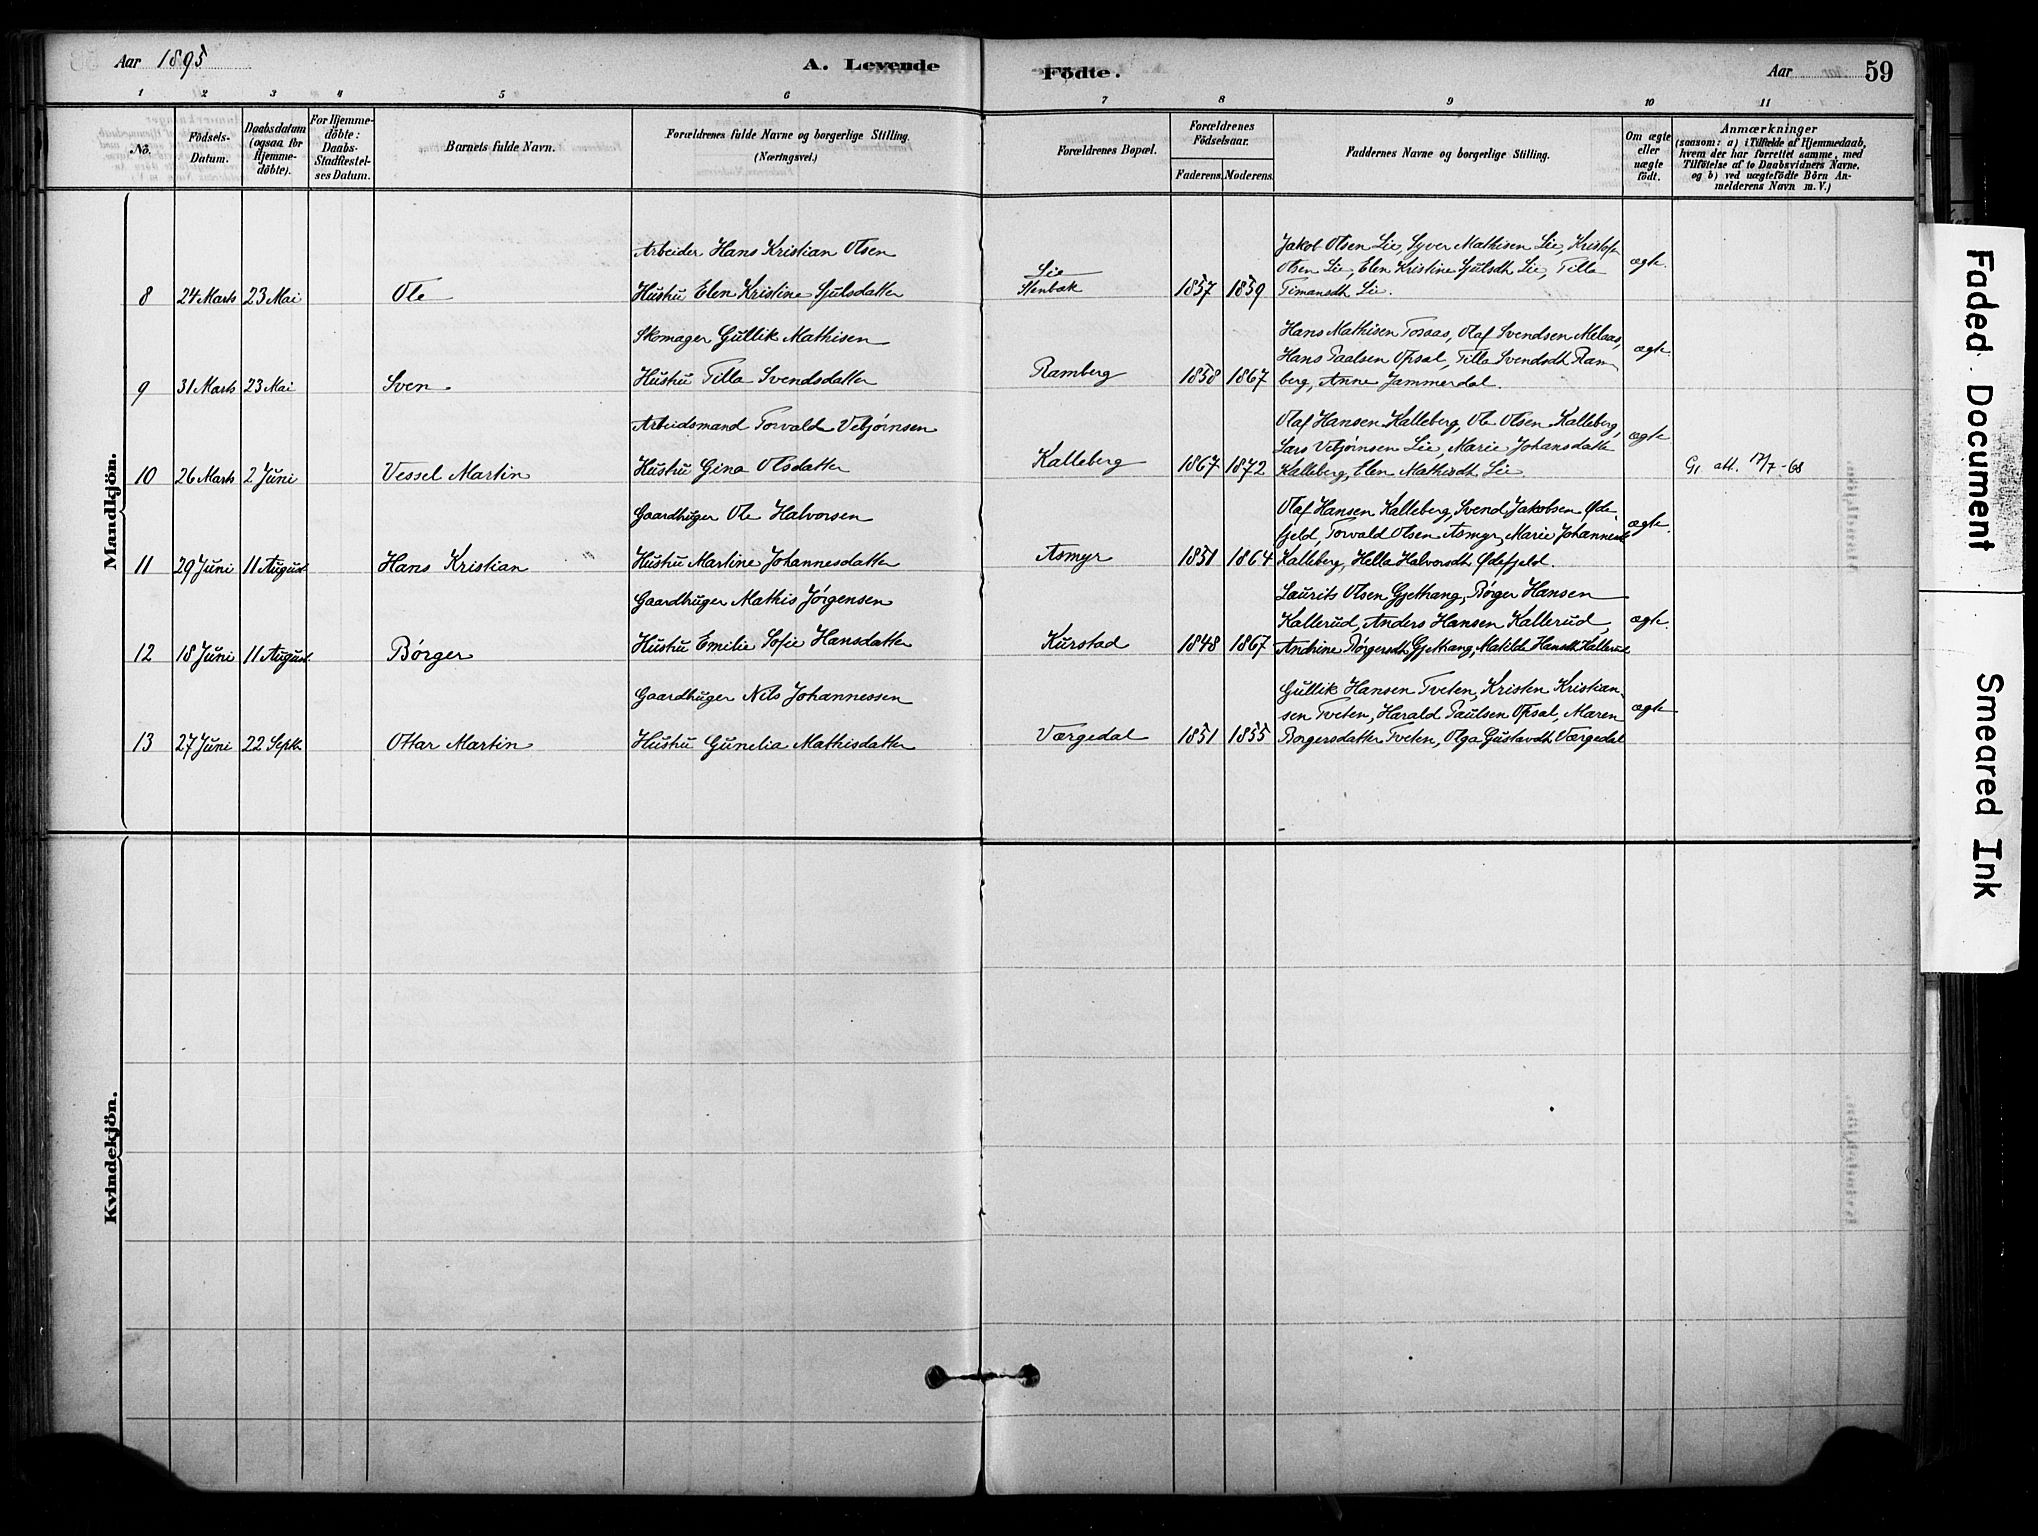 Aar 1895
A. Levende
Födte.
Aar
59
1 2 3 4 5 6 7 8 9 10 11
No.
Födsels-
Datum.
Daabsdatum
(ogsaa for
Hjemme-
döbte).
For Hjemme-
döbte:
Daabs-
Stadfæstel-
ses Datum.
Barnets fulde Navn.
Forældrenes fulde Navne og borgerlige Stilling.
(Næringsvei.)
Forældrenes Bopæl.
Forældrenes
Födselsaar.
Faderens. Moderens.
Faddernes Navne og borgerlige Stilling.
Om ægte
eller
uægte
födt.
Anmærkninger
(saasom: a) i Tilfælde af Hjemmedaab,
hvem der har forrettet samme, med
Tilföielse af to Daabsvidners Navne.
og b) ved uægtefödte Börn An-
melderens Navn m. V.)
Mandkjön.
8 24 Marts 23 Mai Ole
Arbeider Hans Kristian Olsen
Hustru Elen Kristine Sjulsdatter
Lie
Stenbæk
1857 1859
Jakob Olsen Lie, Syver Mathisen Lie, Kristofer
Olsen Lie, Elen Kristine Sjulsdtr Lie, Tilla
Timansdtr Lie.
ægte.
9 31 Marts 23 Mai Sven
Skomager Gullik Mathisen
Hustru Tilla Svendsdatter
Ramberg 1858 1867
Hans Mathisen Toraas, Olaf Svendsen Melaas,
Hans Paalsen Opsal, Tilla Svendsdtr Ram-
berg, Anne Jammerdal.
ægte.
10 26 Marts 2 Juni Vessel Martin
Arbeidsmand Torvald Vebjørnsen
Hustru Gina Olsdatter
Kalleberg 1867 1872
Olaf Hansen Kalleberg, Ole Olsen Kalleberg,
Lars Vebjørnsen Lie, Marie Johansdatter
Kalleberg, Elen Mathisdtr Lie.
ægte
att. 17/7-68
11 29 Juni 11 August Hans Kristian
Gaardbruger Ole Halvorsen
Hustru Martine Johannesdatter
Asmyr 1851 1864
Olaf Hansen Kalleberg, Svend Jakobsen Øde-
fjeld, Torvald Olsen Asmyr, Marie Johannesdtr
Kalleberg, Hella Halvorsdtr Ødefjeld.
ægte.
12 18 Juni 11 August Børger
Gaardbruger Mathis Jørgensen
Hustru Emilie Sofie Hansdatter
Kurstad 1848 1867
Laurits Olsen Gjethang, Børger Hansen
Kallerud, Anders Hansen Kallerud,
Andrine Børgersdtr Gjethang, Matilde Hansdtr Kallerud
ægte.
13 27 Juni 22 Septbr Ottar Martin
Gaardbruger Nils Johannessen
Hustru Gunelia Mathisdatter
Værgedal 1851 1855
Gullik Hansen Tveten, Kristen Kristian-
sen Tveten, Harald Paulsen Opsal, Maren
Borgersdatter Tveten, Olga Gustavdtr Værgedal
ægte
Kvindekjön.
Faded Document
Smeared Ink